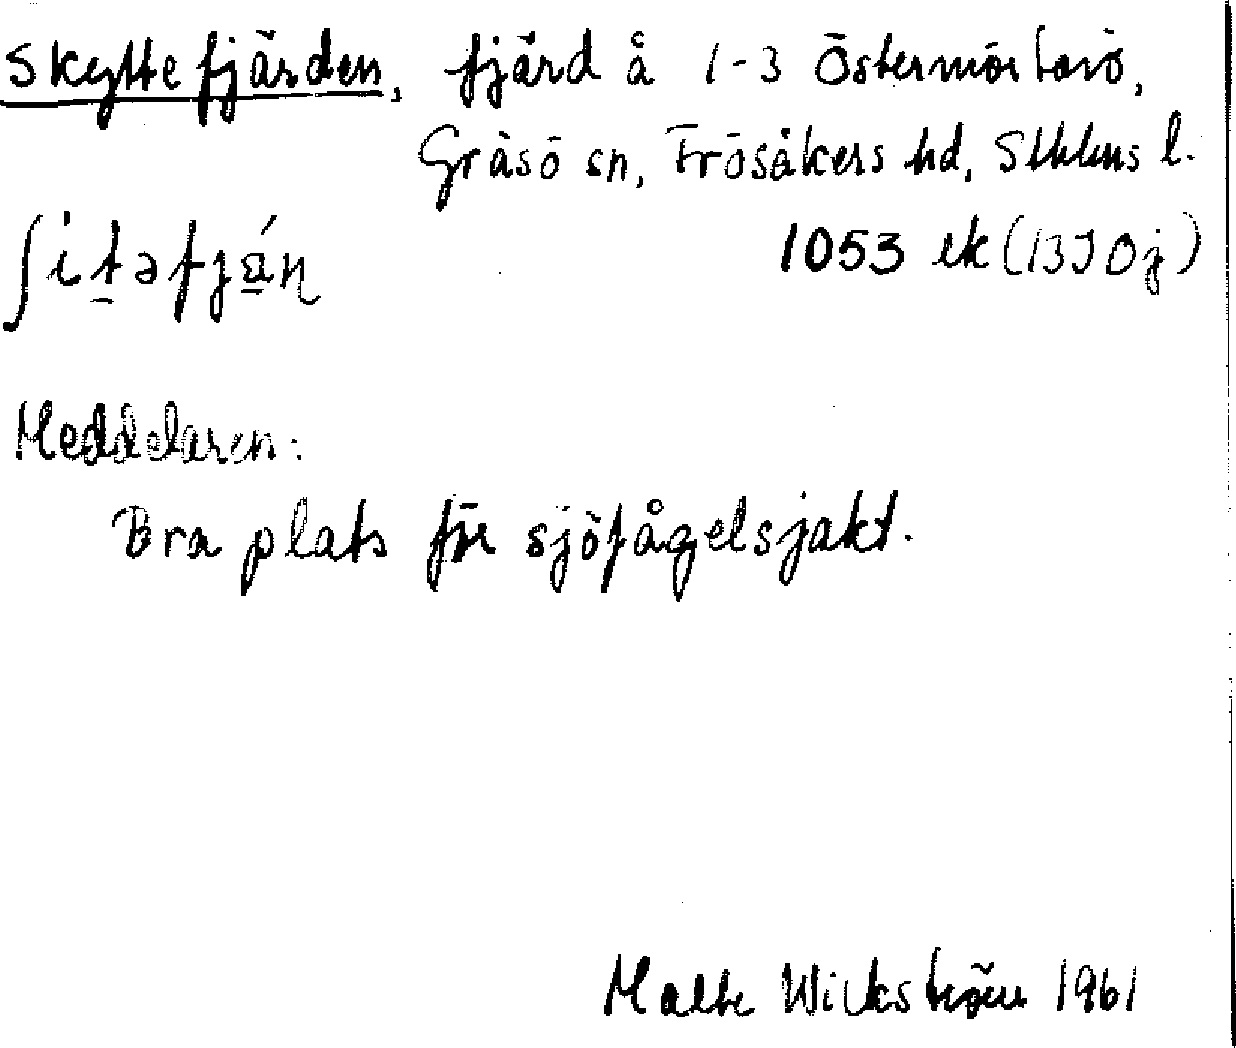 Skyttefjärden, fjärd å 1-3 Östermörtarö,
Gräsö sn, Frösåkers hd, Sthlms l.
ʃitəfjá̱ɳ 1053 ek (13I0j)
Meddelaren:
Bra plats för sjöfågelsjakt.
Malte Wickström 1961